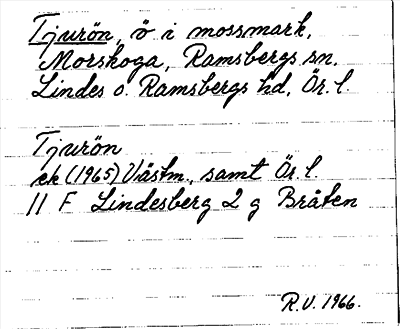 Tjurön, ö i mossmark,
Morskoga, Ramsbergs sn,
Lindes o. Ramsbergs hd, Ör. l.
Tjurön
ek (1965) Västm., samt Ör. l.
11 F Lindesberg 2 g Bråten
R.V. 1966.